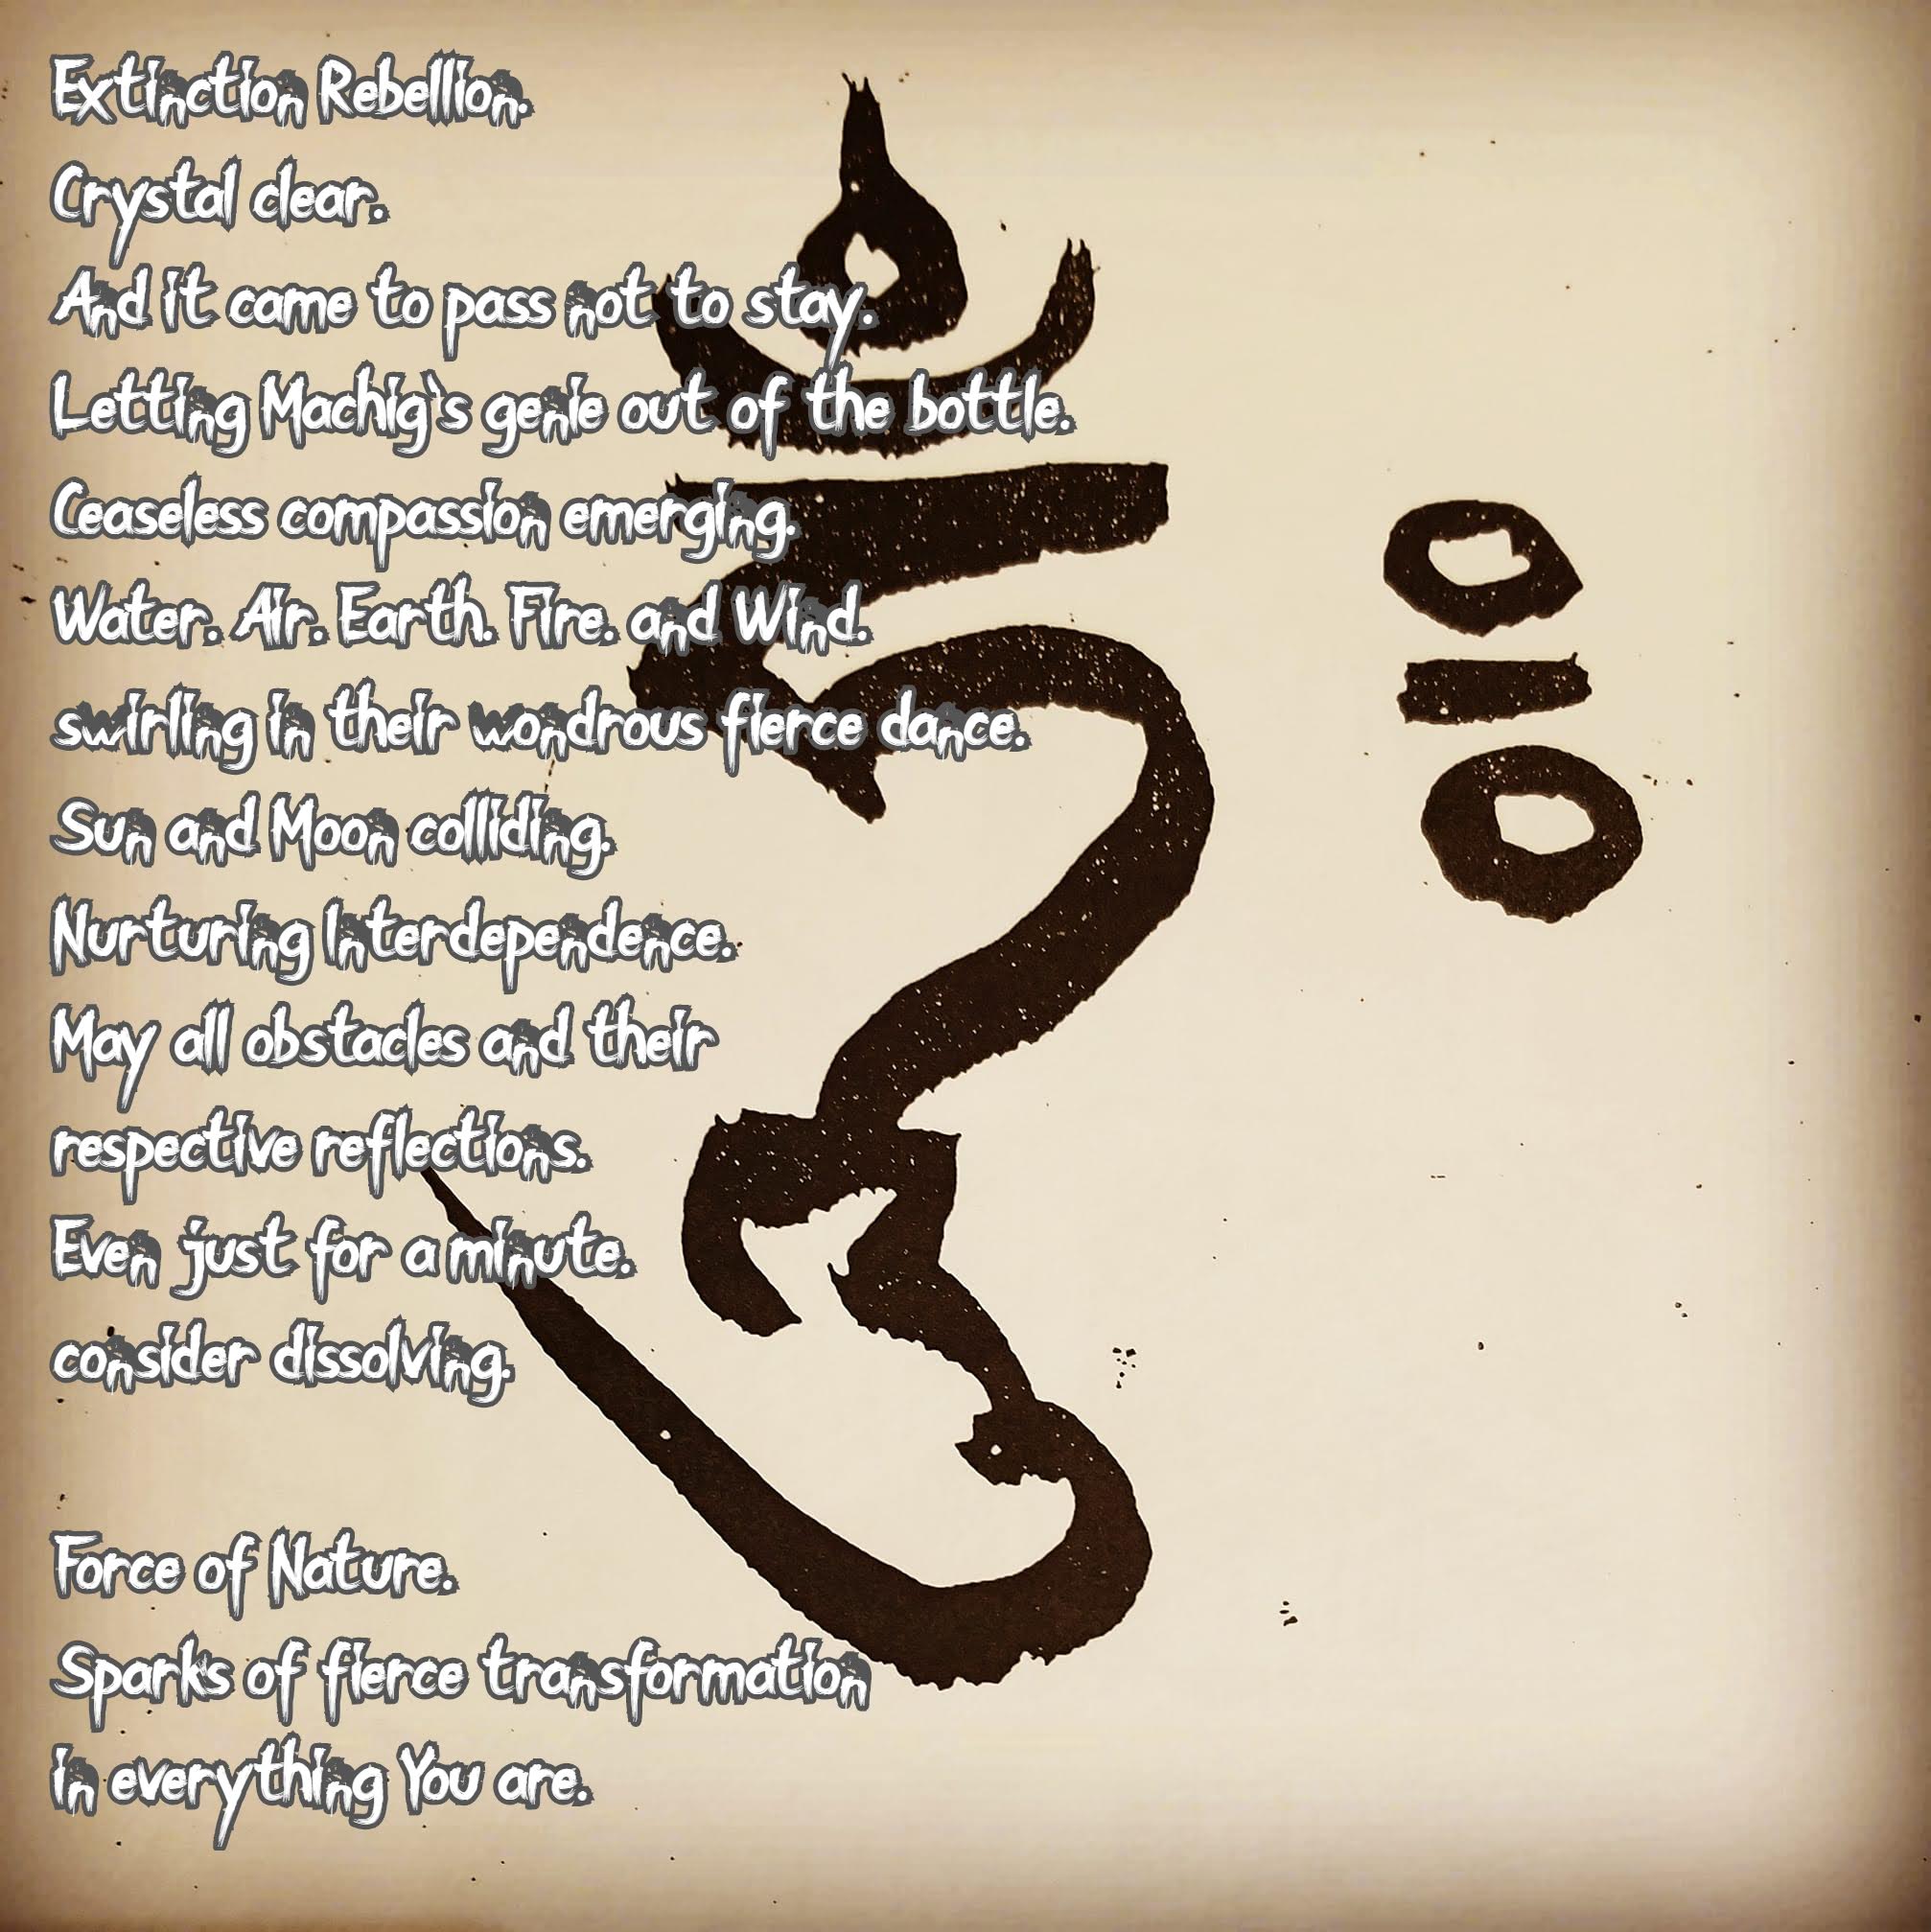 Extinction Rebellion.
Crystal clear.
And it came to pass not to stay.
Letting Machig`s genie out of the bottle.
Ceaseless compassion emerging.
Water. Air. Earth. Fire. and Wind.
swirling in their wondrous fierce dance.
Sun and Moon colliding.
Nurturing Interdependence.
May all obstacles and their
respective reflections.
Even just for a minute.
consider dissolving.
Force of Nature.
Sparks of fierce transformation
in everything You are.
ཧཱུྃ༔